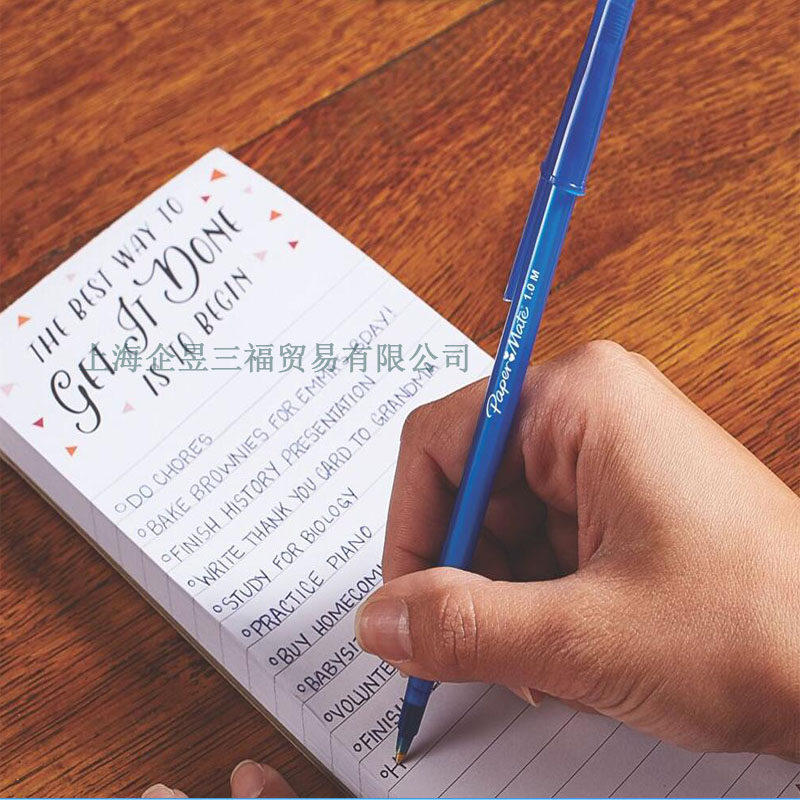 THE BEST WAY TO
GET IT DONE
IS TO BEGIN
上海企昱三福贸易有限公司
DO CHORES
BAKE BROWNIES FOR EMMA'S BDAY!
FINISH HISTORY PRESENTATION
WRITE THANK YOU CARD TO GRANDMA
STUDY FOR BIOLOGY
PRACTICE PIANO
BUY HOMECOM
BABYSI
VOLUNTE
FINISH
H
Paper Mate 1.0 M